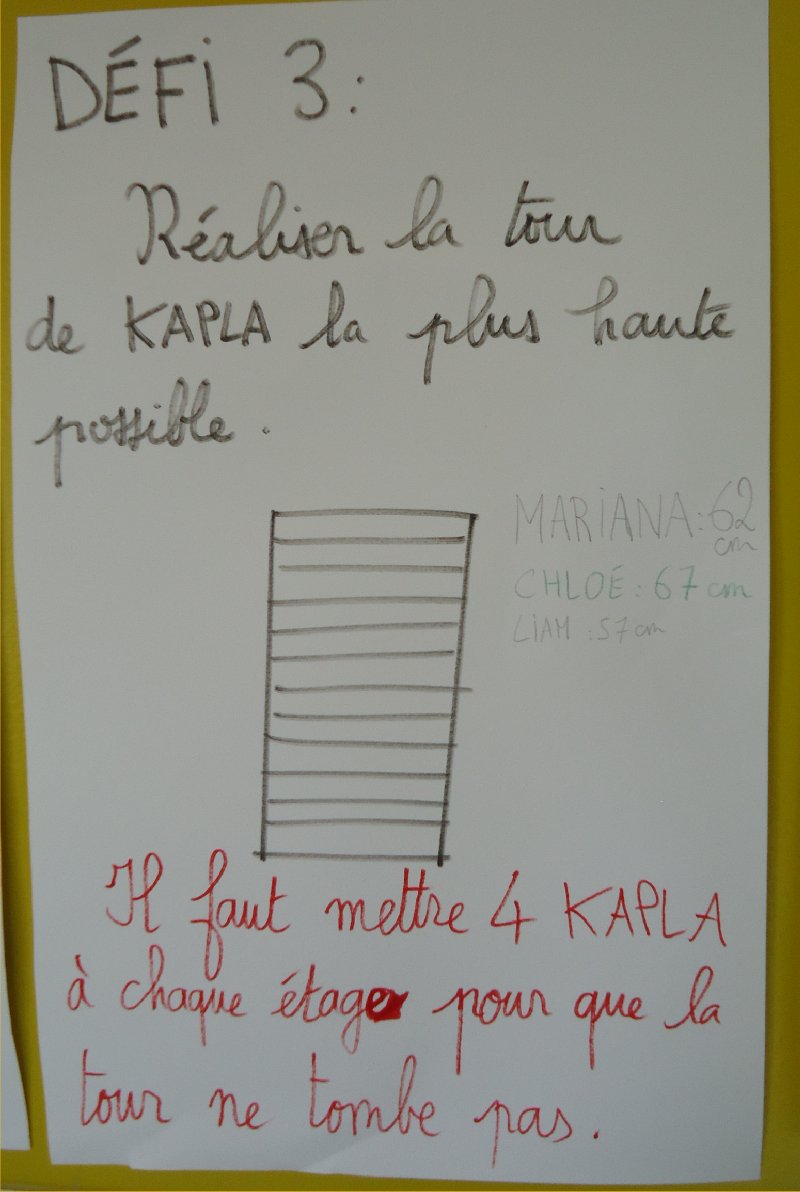 DÉFI 3:
Réaliser la tour
de KAPLA la plus haute
possible.
MARIANA: 62
cm
CHLOÉ: 67 cm
LIAM: 57 cm
Il faut mettre 4 KAPLA
à chaque étage pour que la
tour ne tombe pas.